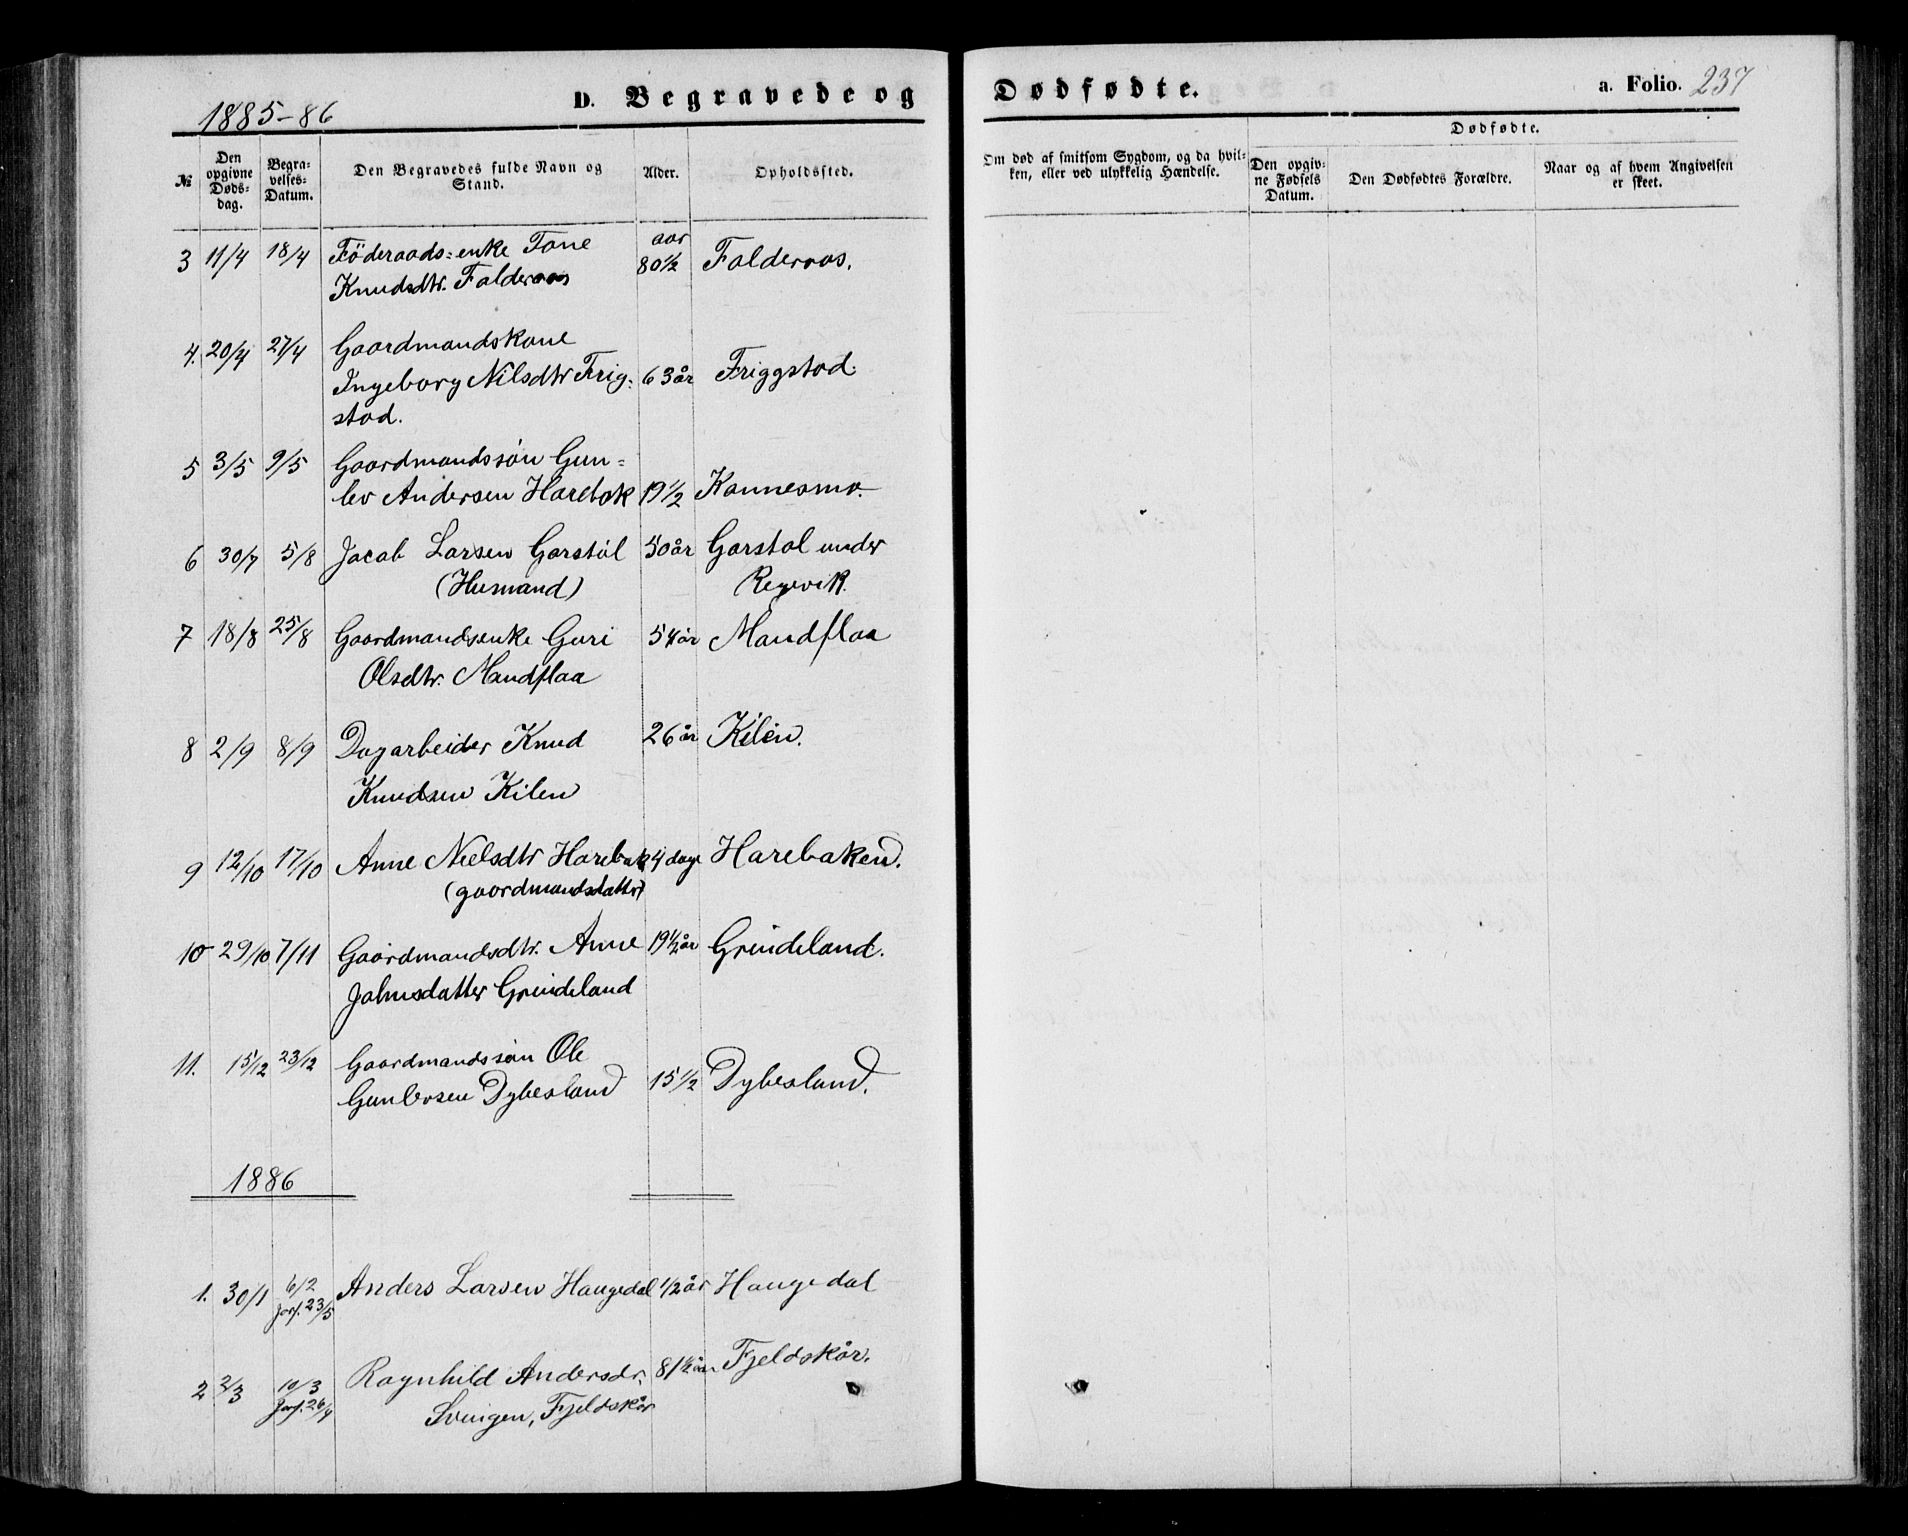 1885-86
D. Begravede og
Dødfødte.
a. Folio. 237
№
Den opgivne Døds-dag.
Begra-velses-Datum.
Den Begravedes fulde Navn og Stand.
Alder.
Opholdssted.
Om død af smitsom Sygdom, og da hvil-
ken, eller ved ulykkelig Hændelse.
Dødfødte.
Den opgiv-ne Fødsels Datum.
Den Dødfødtes Forældre.
Naar og af hvem Angivelsen
er skeet.
3 11/4 18/4 Föderaads-enke Tone aar 80½ Falderaas.
Knudsdtr. Falderaas
4. 20/4 27/4 Gaardmandskone
Ingeborg Nilsdtr Frig- 63 år Friggstad.
stad.
5 3/5 9/5 Gaardmandssøn Gun=
lev Andersen Harebak 19½ Kannesmo.
6 30/7 5/8 Jacob Larsen Garstøl 50 år Garstøl under
(Husmand) Regevik.
7 18/8 25/8 Gaardmandsenke Guri 54 år Mandflaa
Olsdtr. Mandflaa
8 2/9 8/9 Dagarbeider Knud 26 år Kilen.
Knudsen Kilen
9 12/10 17/10 Anne Nielsdtr Harebak 4 dage Harebaken.
(gaardmandsdatter)
10 29/10 7/11 Gaardmandsdtr. Anne 19½ år Greindeland.
Johnsdatter Greindeland
11. 15/12 23/12 Gaardmandssøn Ole
Gunlevsen Dybesland 15½ Dybesland.
1886
1. 30/1 6/2 Anders Larsen Haugedal ½ år Haugedal
Jorf. 23/5
2 2/3 10/3 Ragnhild Andersdr. 81½ år Fjeldskår.
Jorf. 26/4 Svingen, Fjeldskår